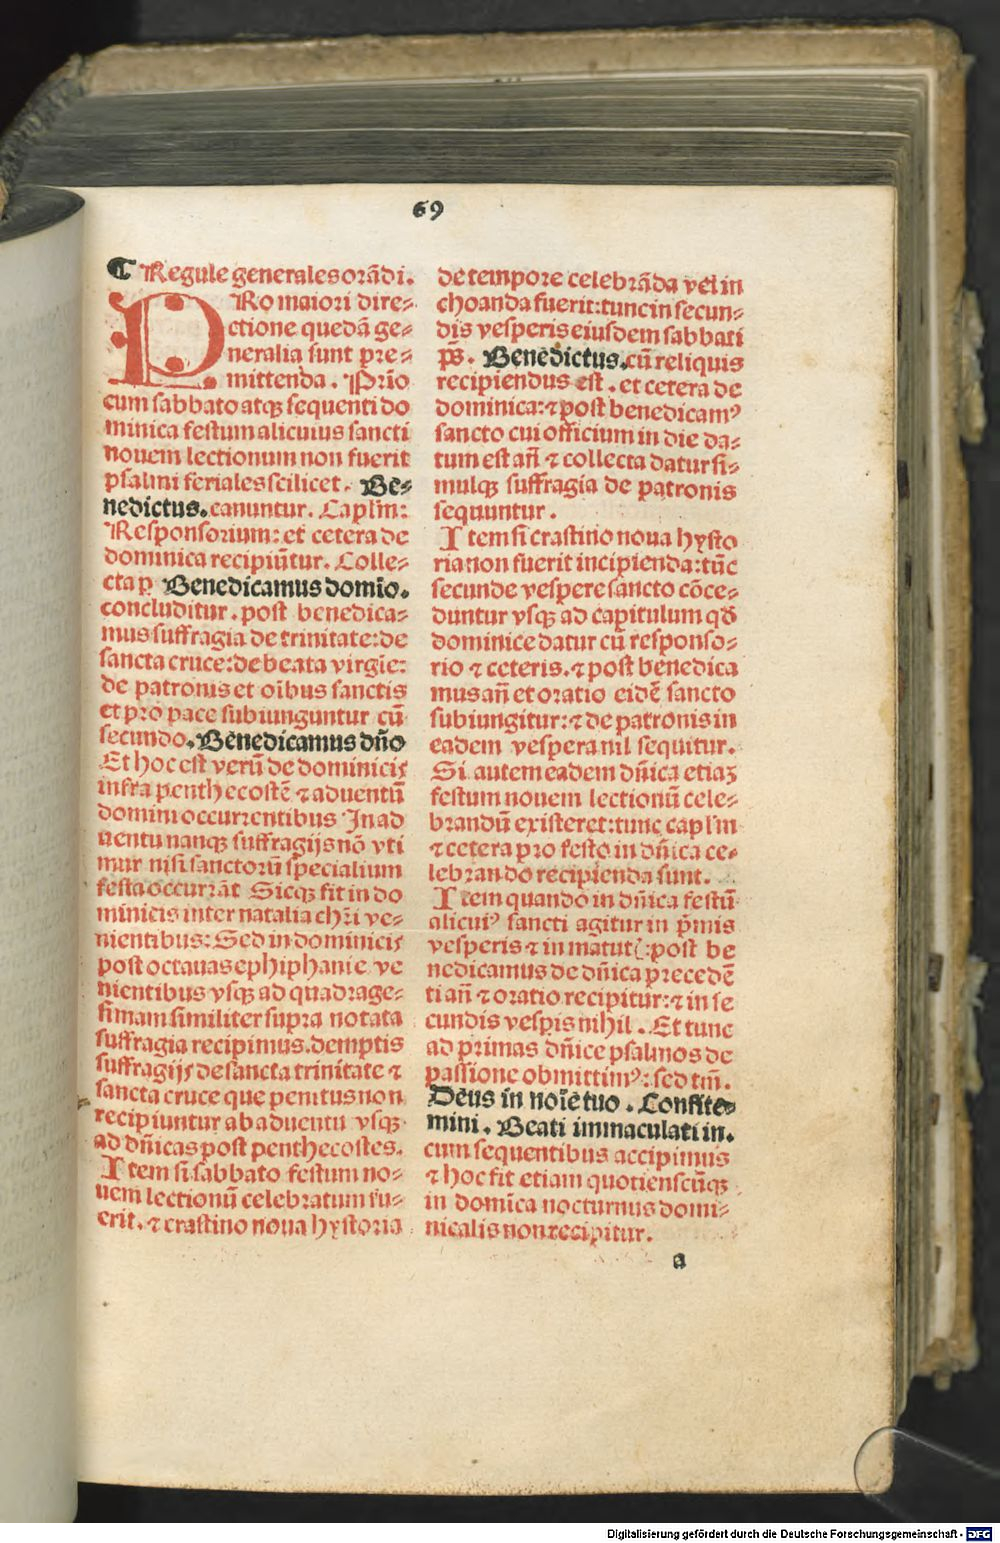 69
¶ Regule generales orādi.
PRo maiori dire⸗
ctione quedā ge⸗
neralia sunt pre⸗
mittenda. Primo
cum sabbato atqꝫ sequenti do
minica festum alicuius sancti
nouem lectionum non fuerit
psalmi feriales scilicet. Be⸗
nedictus. canuntur. Caplm:
Responsorium: et cetera de
dominica recipiūtur. Colle⸗
cta p Benedicamus domīo.
concluditur. post benedica⸗
mus suffragia de trinitate: de
sancta cruce: de beata virgīe:
de patronis et oībus sanctis
et pro pace subiunguntur cū
secundo. Benedicamus dn̄o
Et hoc est verū de dominicis
infra penthecostē ⁊ aduentū
domini occurrentibus In ad
uentu nanqꝫ suffragijs nō vti
mur nisi sanctorū specialium
festa occurrāt Sicqꝫ fit in do
minicis inter natalia chr̄i ve⸗
nientibus: Sed in dominicis
post octauas ephiphanie ve
nientibus vsqꝫ ad quadrage⸗
simam similiter supra notata
suffragia recipimus. demptis
suffragijs de sancta trinitate ⁊
sancta cruce que penitus non
recipiuntur ab aduentu vsqꝫ
ad dn̄icas post penthecostes.
Item si sabbato festum no⸗
uem lectionū celebratum fu⸗
erit. ⁊ crastino noua hystoria
de tempore celebrāda vel in
choanda fuerit: tunc in secun⸗
dis vesperis eiusdem sabbati
ps̄. Benedictus. cū reliquis
recipiendus est. et cetera de
dominica: ⁊ post benedicamꝰ
sancto cui officium in die da⸗
tum est an̄ ⁊ collecta datur si⸗
mulqꝫ suffragia de patronis
sequuntur.
Item si crastino noua hysto
ria non fuerit incipienda: tūc
secunde vespere sancto cōce⸗
duntur vsqꝫ ad capitulum qd̄
dominice datur cū responso⸗
rio ⁊ ceteris. ⁊ post benedica
mus an̄ et oratio eidē sancto
subiungitur: ⁊ de patronis in
eadem vespera nil sequitur.
Si autem eadem dn̄ica etiaꝫ
festum nouem lectionū cele⸗
brandū existeret: tunc caplm
⁊ cetera pro festo in dn̄ica ce⸗
lebrando recipienda sunt.
Item quando in dn̄ica festū
alicuiꝰ sancti agitur in p̄mis
vesperis ⁊ in matut: post be
nedicamus de dn̄ica precedē
ti an̄ ⁊ oratio recipitur: ⁊ in se
cundis vesp̄is nihil. Et tunc
ad primas dn̄ice psalmos de
passione obmittimꝰ: sed tm̄.
Deus in noīe tuo. Confite⸗
mini. Beati immaculati in.
cum sequentibus accipimus
⁊ hoc fit etiam quotienscūqꝫ
in domīca nocturnus domi⸗
nicalis non recipitur.
a
Digitalisierung gefördert durch die Deutsche Forschungsgemeinschaft - DFG